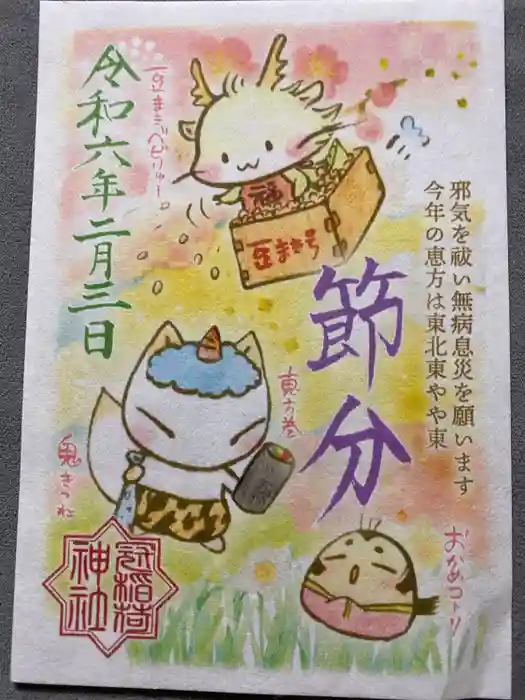 邪気を祓い無病息災を願います
今年の恵方は東北東やや東
節分
令和六年二月三日
豆まきベビりゅー。
神
豆まき号
恵方巻
鬼きつね
おかめコトリ
冠稲荷
神社